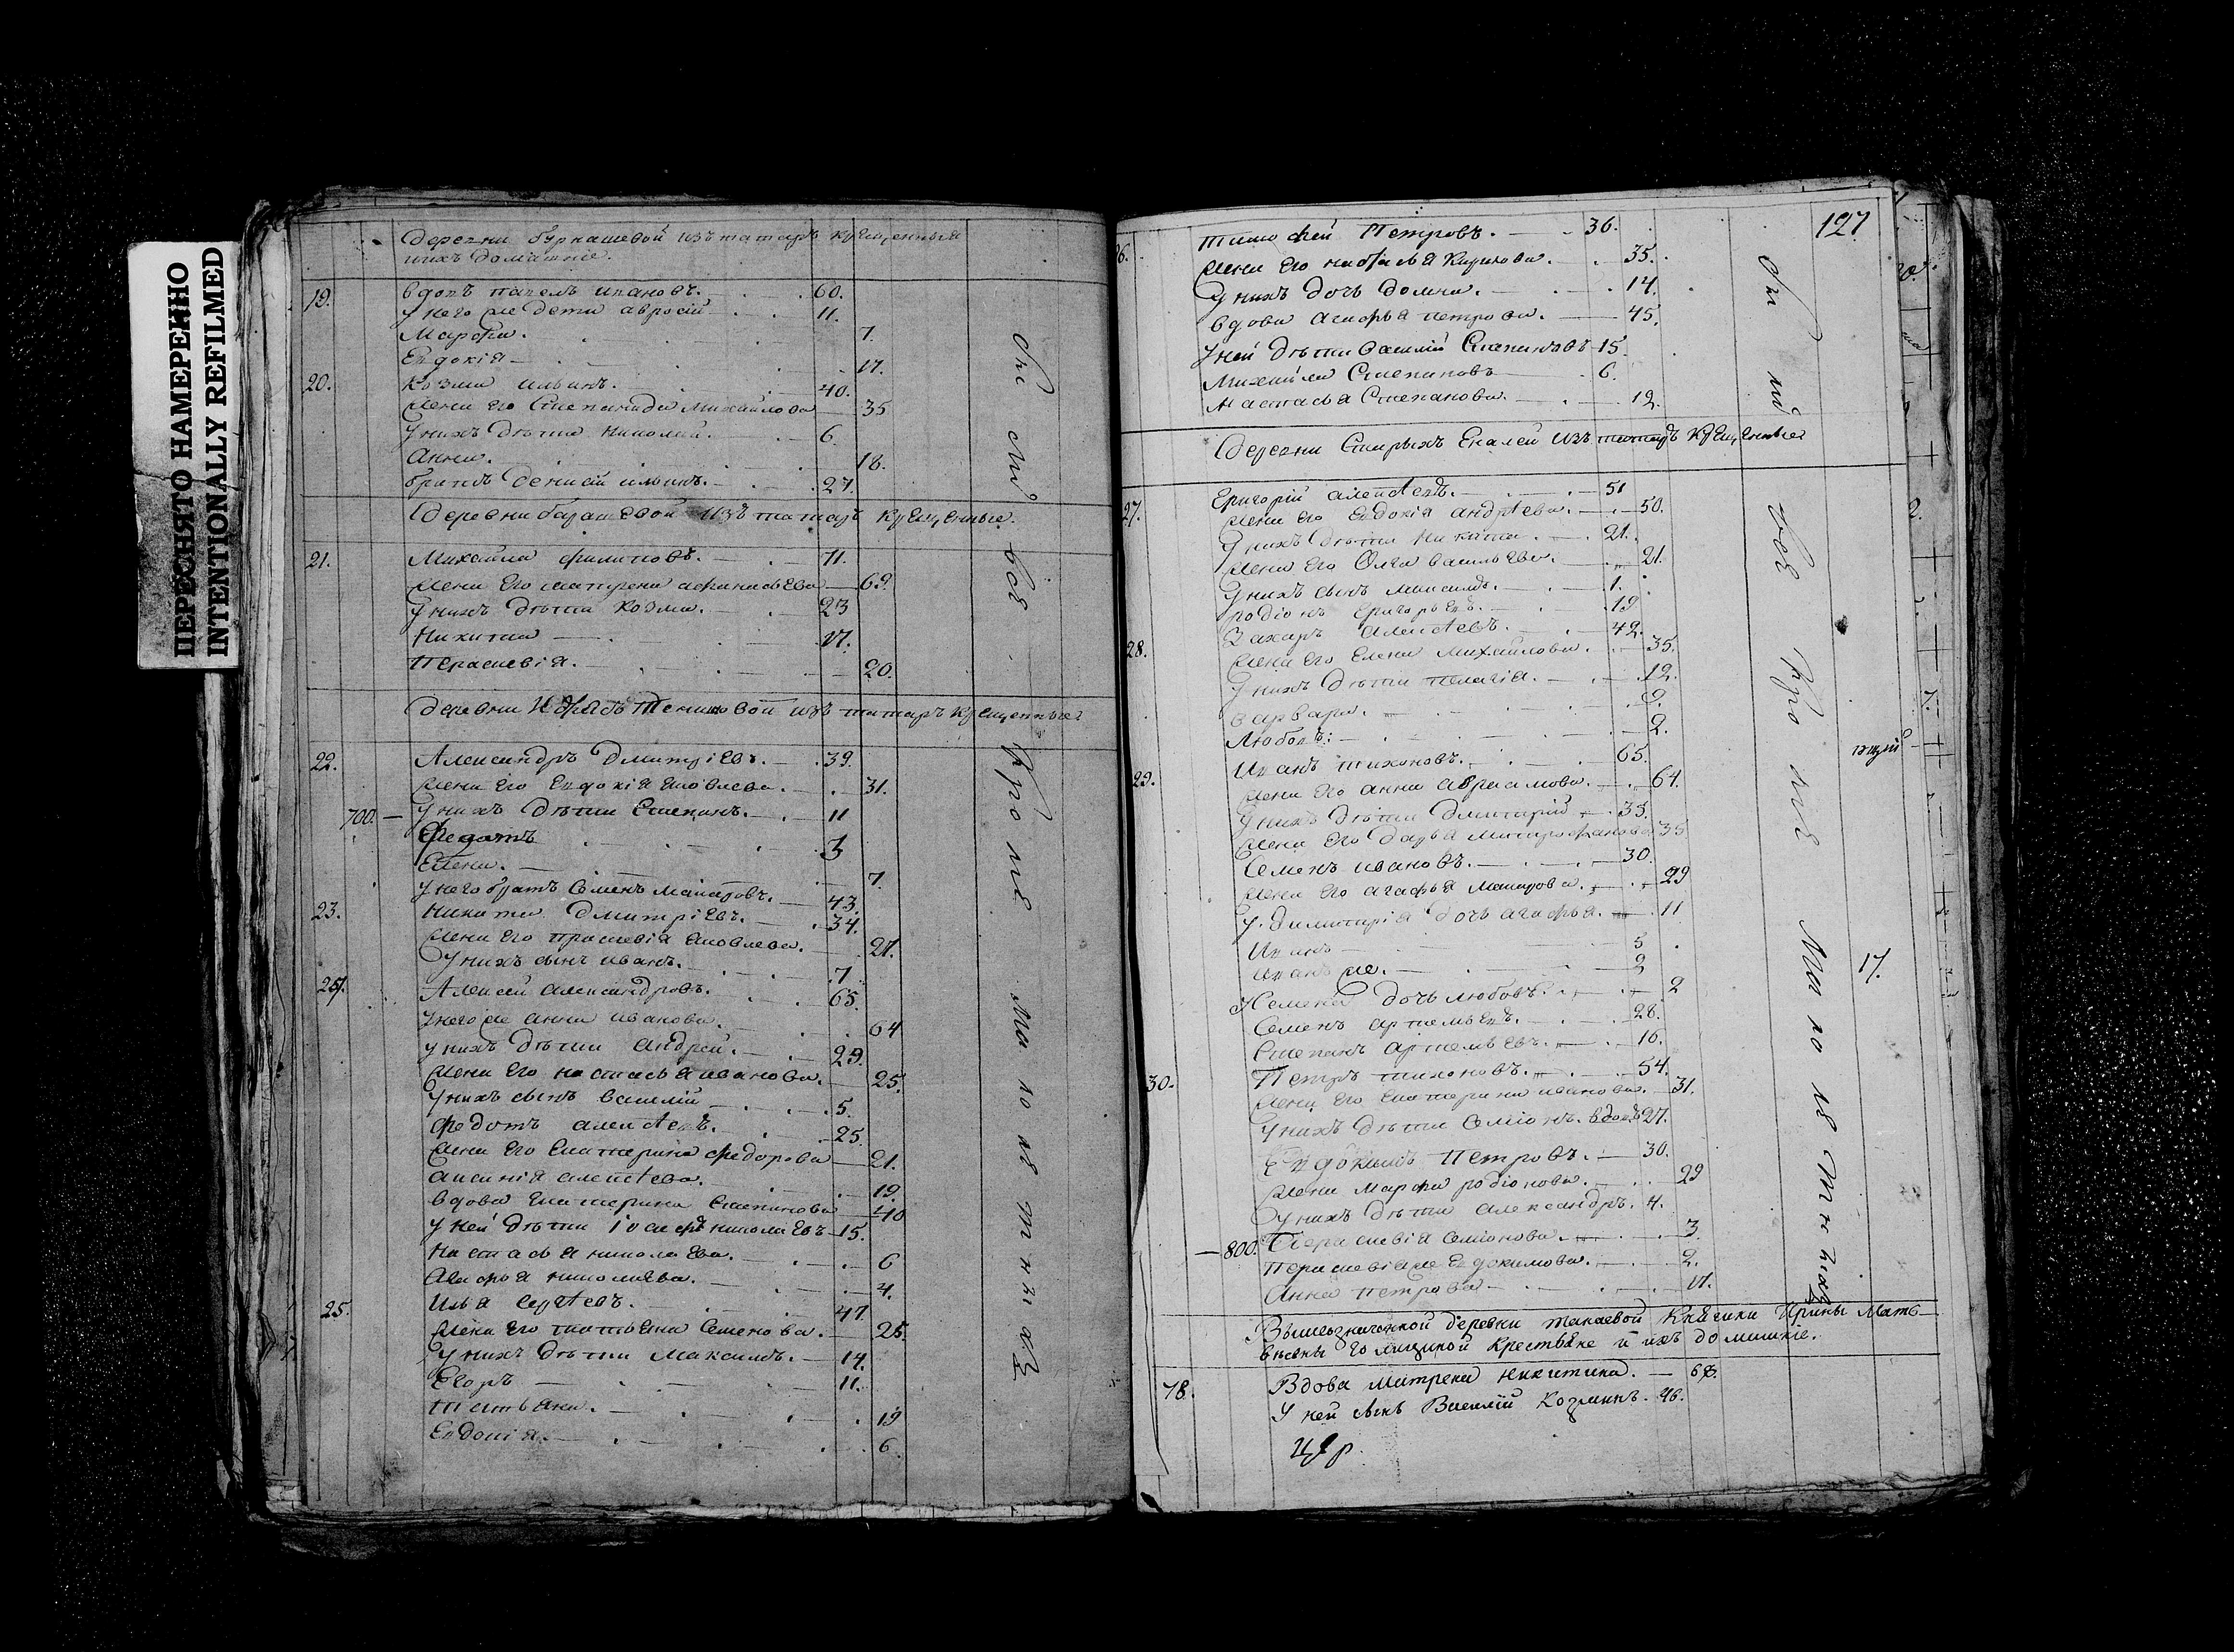 ПЕРЕСНЯТО НАМЕРЕННО
INTENTIONALLY REFILMED
Деревни бурнашевой изъ татаръ крещенныя
ихъ домашние.
19. вдовъ павелъ ивановъ. 60.
у него же дети 11.
Марфа. 7.
Евдокія 17.
20. Козма ильинъ. 40.
жена его Степанида Михаилова 35
у нихъ дѣти николай. 6.
Анна. 18.
братъ денисій ильинъ. 27.
Деревни изъ татаръ крещенные.
21. Михаила филиповъ. 71.
жена его матрена афанасьева 69.
у нихъ дѣти козма. 23
Никита 17.
Парасковія. 20.
Деревни изъ татаръ крещенные
22. Александръ Дмитріевъ. 39.
жена его Евдокія яковлева. 31.
700. у нихъ дѣти Степанъ. 11
Федотъ 3
Елена. 7.
у него братъ Семенъ 43.
23. Никита Дмитріевъ. 34.
жена его яковлева. 27.
у нихъ сынъ иванъ. 7
24. Алексей александровъ. 65.
у него же анна иванова. 64
у нихъ дѣти андрей. 29.
жена его настасья иванова. 25.
у нихъ сынъ василій 5.
Федотъ алексѣевъ. 25.
жена его Екатерина федорова 21.
аксинія алексѣева. 19.
вдова Екатерина Степанова 40
у ней дѣти николаевъ 15.
Настасья николаева. 6
Агафья николаева. 4.
25. Илья Сергѣевъ. 47
жена его татьяна Семенова. 25.
у нихъ дѣти Максимъ. 14.
Егоръ 11.
Татьяна. 19
Евдокія. 6.
всѣ кромѣ малолѣтнихъ
127
26. Тимофей Петровъ. 36.
жена его настасья 35.
у нихъ дочь домна. 14.
вдова агафья петрова. 45.
у ней дѣти василій Степановъ 15.
Михайла Степановъ 6.
Настасья Степанова. 12.
Деревни Старыхъ изъ татаръ крещенные
27. Григорій алексѣевъ. 51
жена его Евдокія андрѣева. 50.
у нихъ дѣти никита. 21.
жена его Олга васильева. 21.
у нихъ сынъ максимъ. 1.
родіонъ григорьевъ. 19.
28. Захаръ алексѣевъ. 42.
жена его Елена Михаилова. 35.
у нихъ дѣти пелагія. 12.
варвара. 9.
Любовь. 2.
29. Иванъ тихоновъ. 65.
жена его анна авраамова. 64.
у нихъ дѣти дмитрій 35.
жена его дарья митрофанова 35
Семенъ ивановъ. 30.
жена его агафья 29
у димитрія дочь агафья. 11
Иванъ 5
иванъ же. 2
у Семена дочь любовь. 2
Семенъ артемьевъ. 28.
Степанъ артемьевъ. 16.
30. Петръ тихоновъ. 54.
жена его Екатерина иванова. 31.
у нихъ дѣти Симіонъ. вдовъ 27.
Евдокимъ Петровъ. 30.
жена Марфа родіонова. 29
у нихъ дѣти александръ. 4.
800. Парасковія Симіонова. 3.
Парасковія же Евдокимова. 2.
Анна петрова 17.
17.
всѣ кромѣ малолѣтнихъ
Вышеозначенной деревни Княгини Ирины Матв-
вѣевны Голицыной крестьяне и ихъ домашніе.
78. Вдова матрена никитина.
У ней сынъ Василій Козминъ. 46.